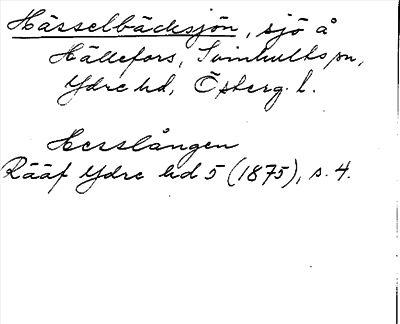 Hässelbäcksjön, sjö å
Hällefors, Svinhults sn,
Ydre hd, Österg. l.
Hesslången
Rääf Ydre hd 5 (1875), s. 4.